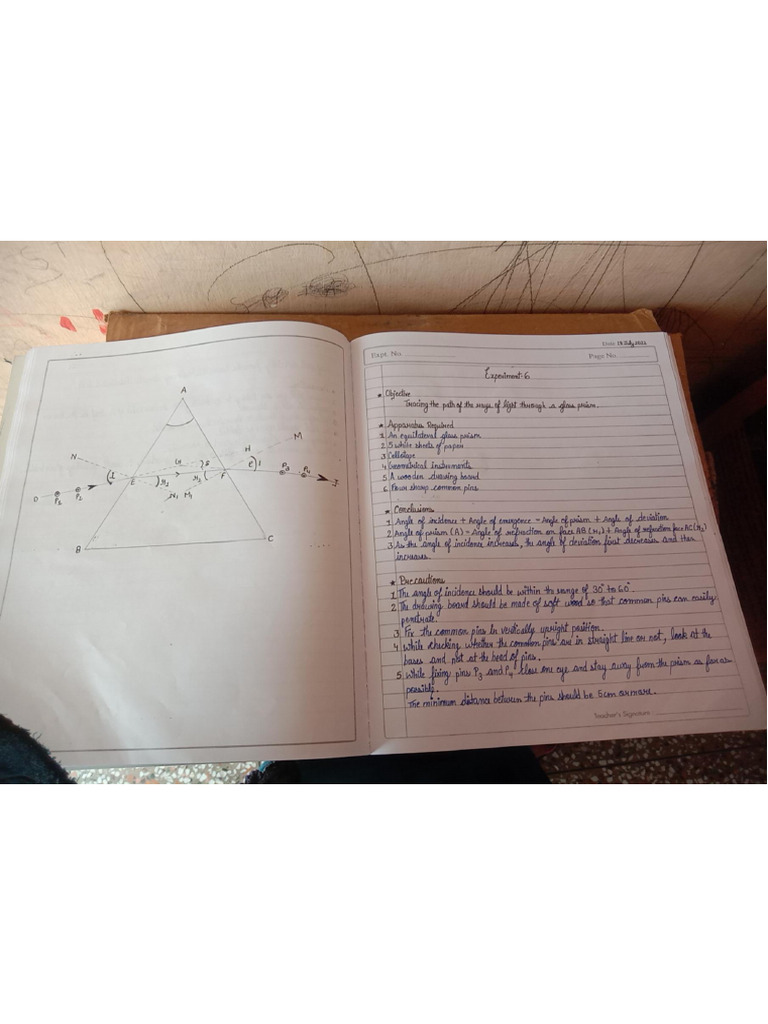 A
N
H
M
i
E
r1
r2
F
e
P3
P4
D
P1
P2
N1 M1
B
C
Date 18 July 2022
Expt. No.
Page No.
Experiment-6
* Objective
Tracing the path of the rays of light through a glass prism.
* Apparatus Required
1 An equilateral glass prism
2 5 white sheets of paper
3 Cellotape
4 Geometrical instruments
5 A wooden drawing board
6 Four sharp common pins
* Conclusions
1 Angle of incidence + Angle of emergence = Angle of prism + Angle of deviation
2 Angle of prism (A) = Angle of refraction on face AB (r1) + Angle of refraction face AC (r2)
3 As the angle of incidence increases, the angle of deviation first decreases and then
increases.
* Precautions
1 The angle of incidence should be within the range of 30° to 60°
2 The drawing board should be made of soft wood so that common pins can easily
penetrate.
3 Fix the common pins in vertically upright position.
4 While checking whether the common pins are in straight line or not, look at the
bases and not at the head of pins.
5 While fixing pins P3 and P4 close one eye and stay away from the prism as far as
possible.
The minimum distance between the pins should be 5cm or more.
Teacher's Signature